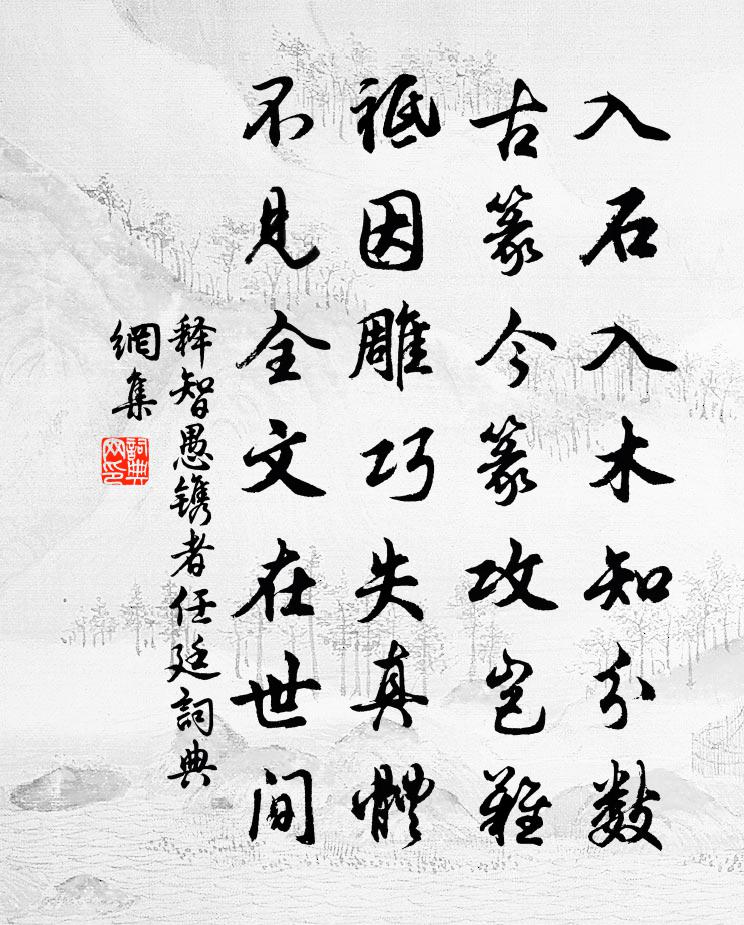 入石入木知分数
古篆今篆攻岂难
祗因雕巧失真體
不见全文在世间
释智愚镌者任廷詞典
網集
詞典
网印